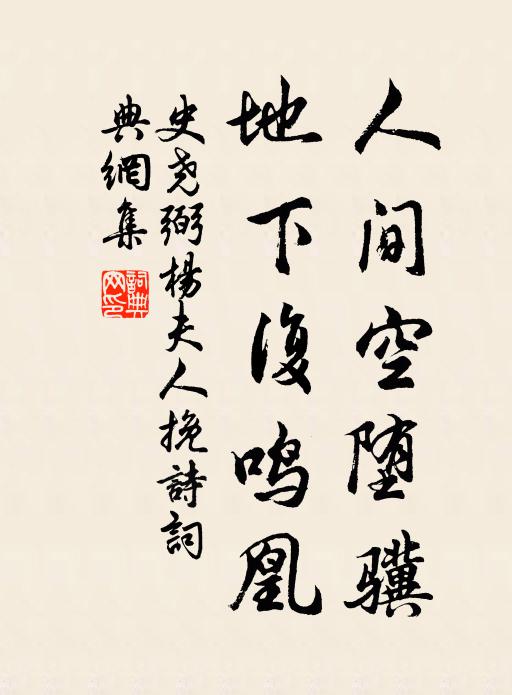 人间空堕骥
地下复鸣凰
史尧弼楊夫人挽詩詞
典網集
詞典
网印